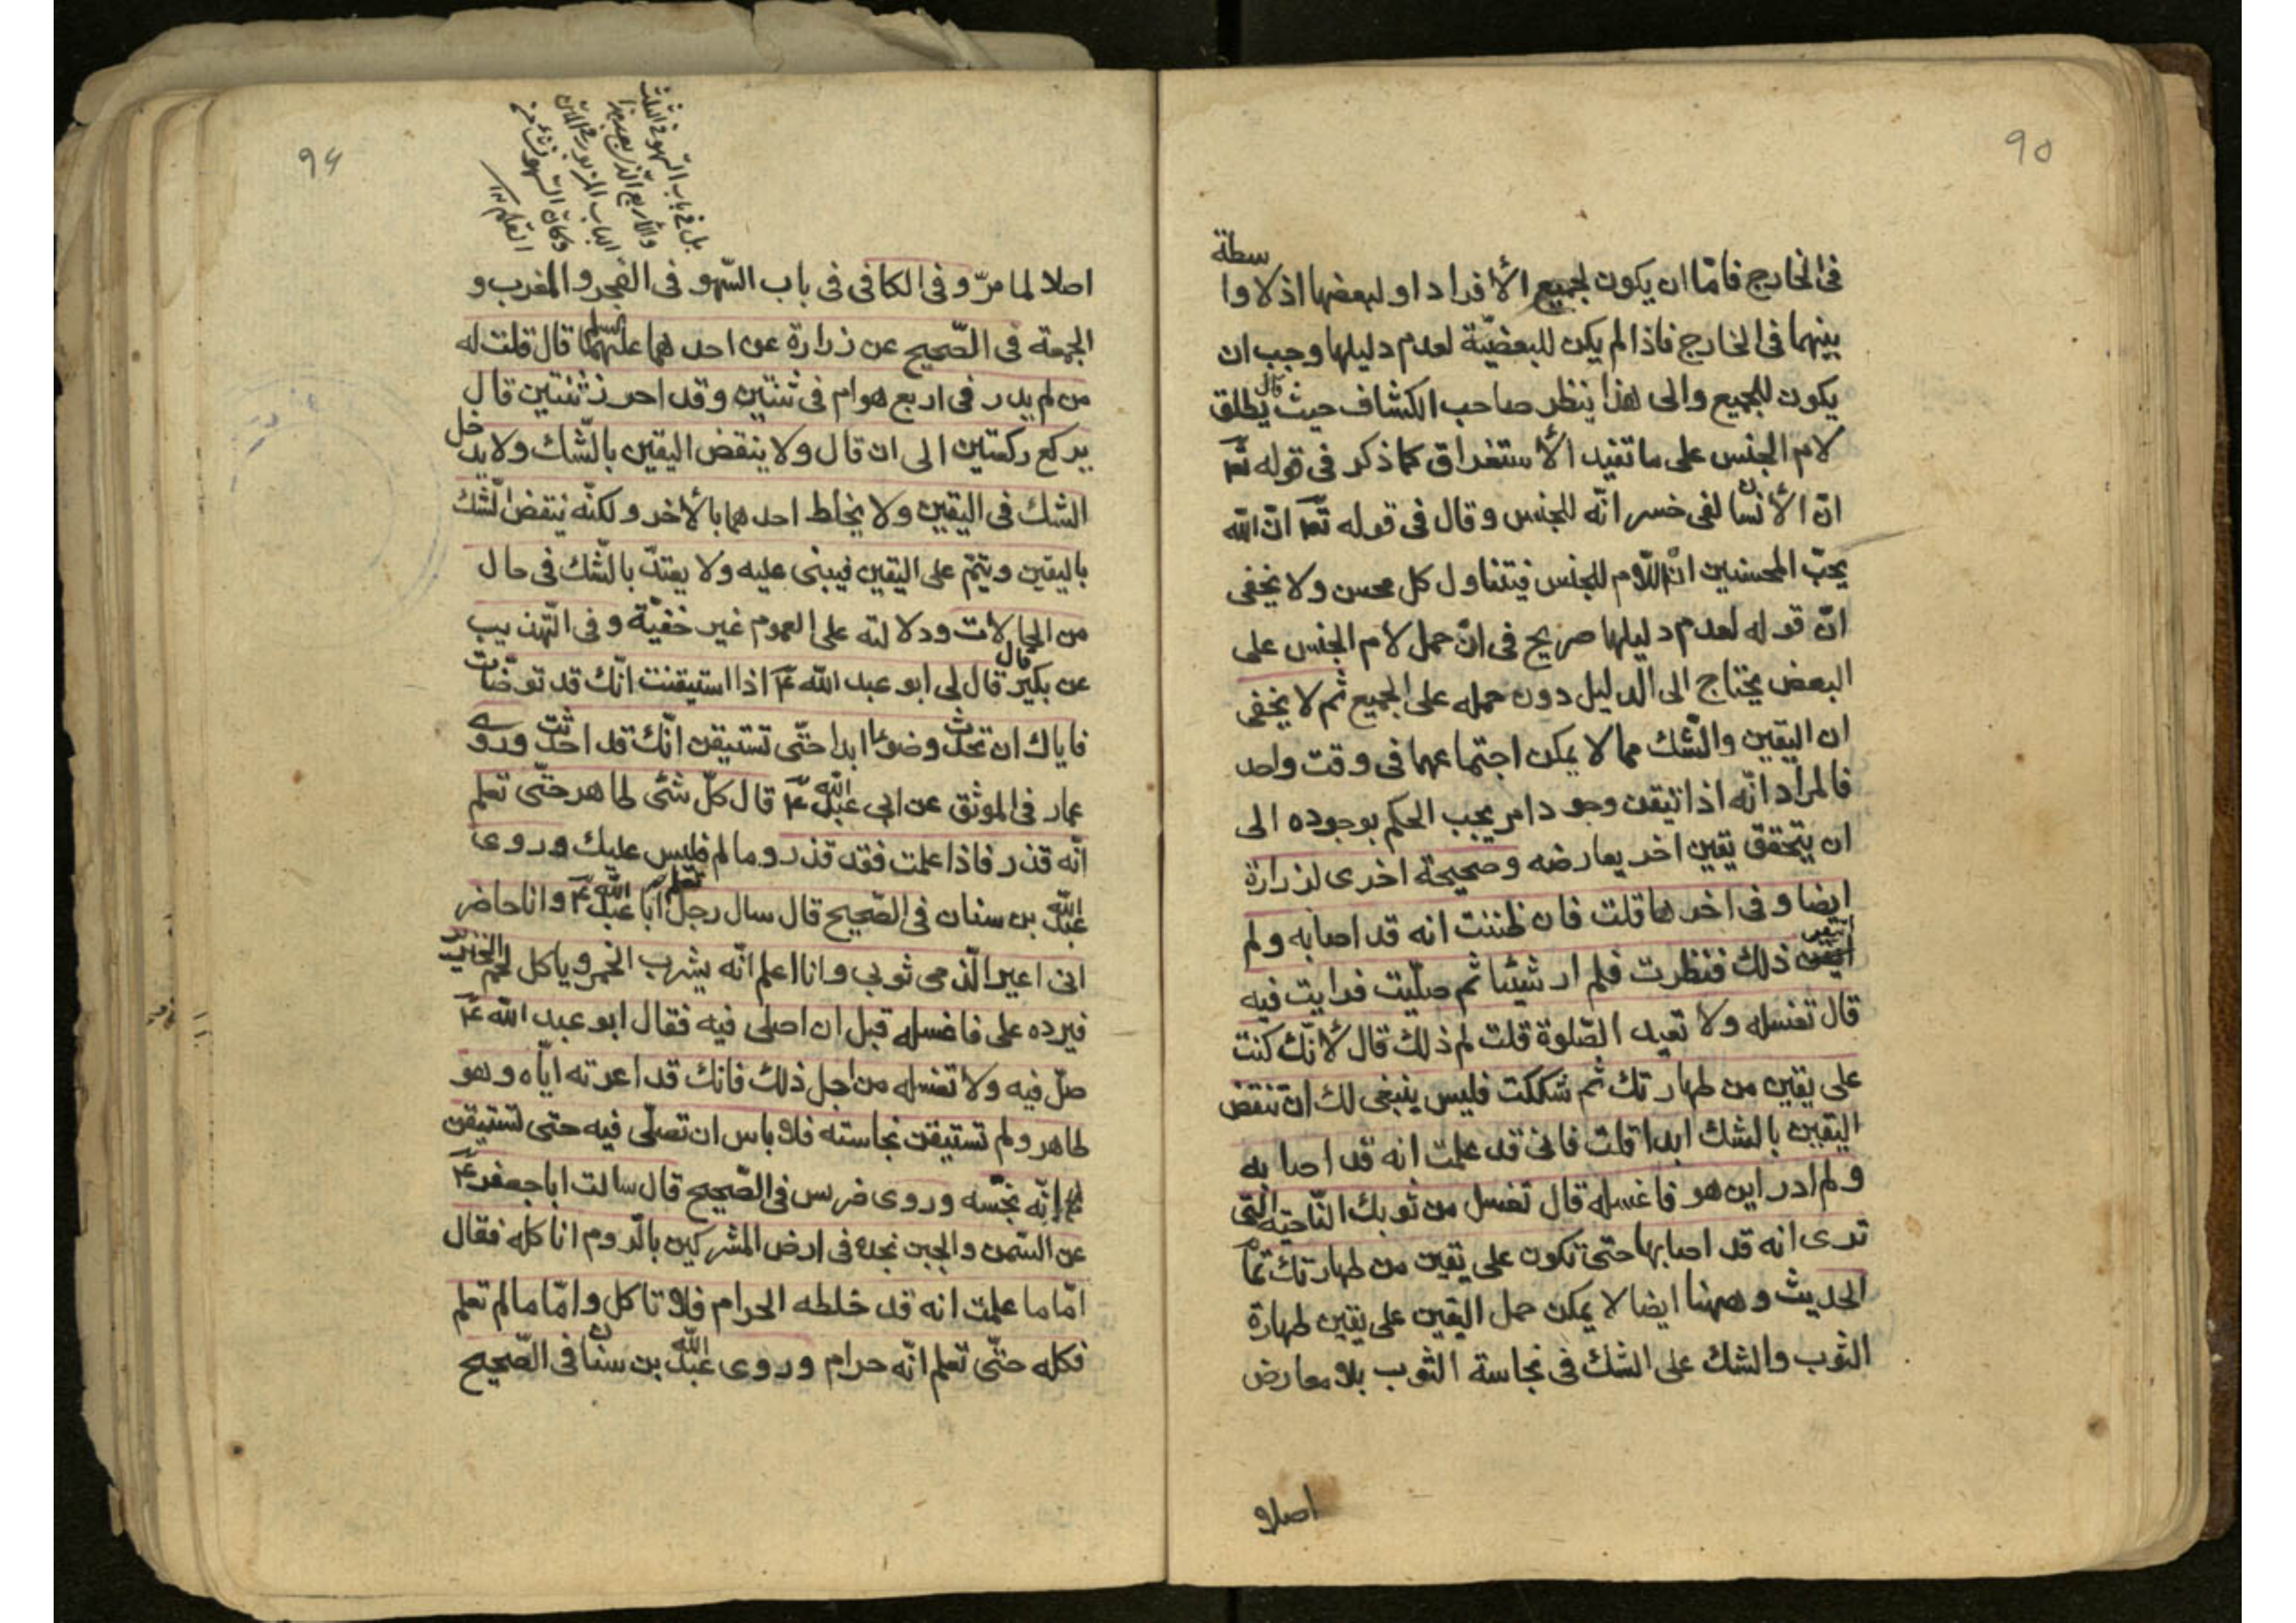 ٩٥
فى الخارج فامّا ان يكون لجميع الأفراد او لبعضها اذ لا واسطة
بينهما فى الخارج فاذا لم يكن للبعضيّة لعدم دليلها وجب ان
يكون للجميع والى هذا ينظر صاحب الكشاف حيث قال يطلق
لام الجنس على ما تفيد الأستغراق كما ذكر فى قوله تعّ
انّ الأنسان لفى خسر انّه للجنس وقال فى قوله تعّ انّ الله
يحبّ المحسنين انّ اللّام للجنس فيتناول كل محسن ولا يخفى
انّ قوله لعدم دليلها صريح فى انّ حمل لام الجنس على
البعض يحتاج الى الدليل دون حمله على الجميع ثم لا يخفى
ان اليقين والشّك مما لا يمكن اجتماعهما فى وقت واحد
فالمراد انّه اذا تيقن وجود امر يجب الحكم بوجوده الى
ان يتحقق يقين اخر يعارضه وصحيحة اخرى لزرارة
ايضا وفى اخرها قلت فان ظننت انه قد اصابه ولم
اتيقن ذلك فنظرت فلم ار شيئا ثم صلّيت فرايت فيه
قال تغسله ولا تعيد الصّلوة قلت لم ذلك قال لأنّك كنت
على يقين من طهارتك ثم شككت فليس ينبغى لك ان تنقض
اليقين بالشك ابدا قلت فانى قد علمت انه قد اصابه
ولم ادر اين هو فاغسله قال تغسل من ثوبك النّاحية التى
ترى انه قد اصابها حتى تكون على يقين من طهارتك تمام
الحديث وههنا ايضا لا يمكن حمل اليقين على يقين طهارة
الثوب والشك على الشك فى نجاسة الثوب بلا معارض
اصلا
٩٦
بل فى باب السّهو فى الثلث
والأربع الّذى بعد هذا
الباب المزبور فى المتن
وكان السهو نشأ من
القلم ١٢
اصلا لما مرّ وفى الكافى فى باب السّهو فى الفجر والمغرب و
الجمعة فى الصّحيح عن زرارة عن احدهما عليهما السلم قال قلت له
من لم يدر فى اربع هو ام فى ثنتين وقد احرز ثنتين قال
يركع ركعتين الى ان قال ولا ينقض اليقين بالشّك ولا يدخل
الشك فى اليقين ولا يخلط احدهما بالأخر ولكنّه ينقض الشّك
باليقين ويتمّ على اليقين فيبنى عليه ولا يعتدّ بالشّك فى حال
من الحالات ودلالته على العموم غير خفيّة وفى التّهذيب
عن بكير قال قال لى ابو عبد الله عّ اذا استيقنت انّك قد توضّات
فاياك ان تحدث وضوءا ابدا حتّى تستيقن انّك قد احدثت وروى
عمار فى الموثق عن ابى عبد الله عّ قال كلّ شئى طاهر حتّى تعلم
انّه قذر فاذا علمت فقد قذر وما لم تعلم فليس عليك وروى
عبد الله بن سنان فى الصّحيح قال سال رجل ابا عبد الله عّ وانا حاضر
انى اعير الذّمى ثوبى وانا اعلم انّه يشرب الخمر وياكل لحم الخنزير
فيرده على فاغسله قبل ان اصلى فيه فقال ابو عبد الله عّ
صلّ فيه ولا تغسله من اجل ذلك فانك قد اعرته ايّاه وهو
طاهر ولم تستيقن نجاسته فلا باس ان تصلّى فيه حتى تستيقن
انّه نجّسه وروى ضريس فى الصّحيح قال سالت ابا جعفر عّ
عن السّمن والجبن نجده فى ارض المشركين بالرّوم اناكله فقال
امّا ما علمت انه قد خلطه الحرام فلا تاكل وامّا ما لم تعلم
فكله حتّى تعلم انّه حرام وروى عبد الله بن سنان فى الصّحيح